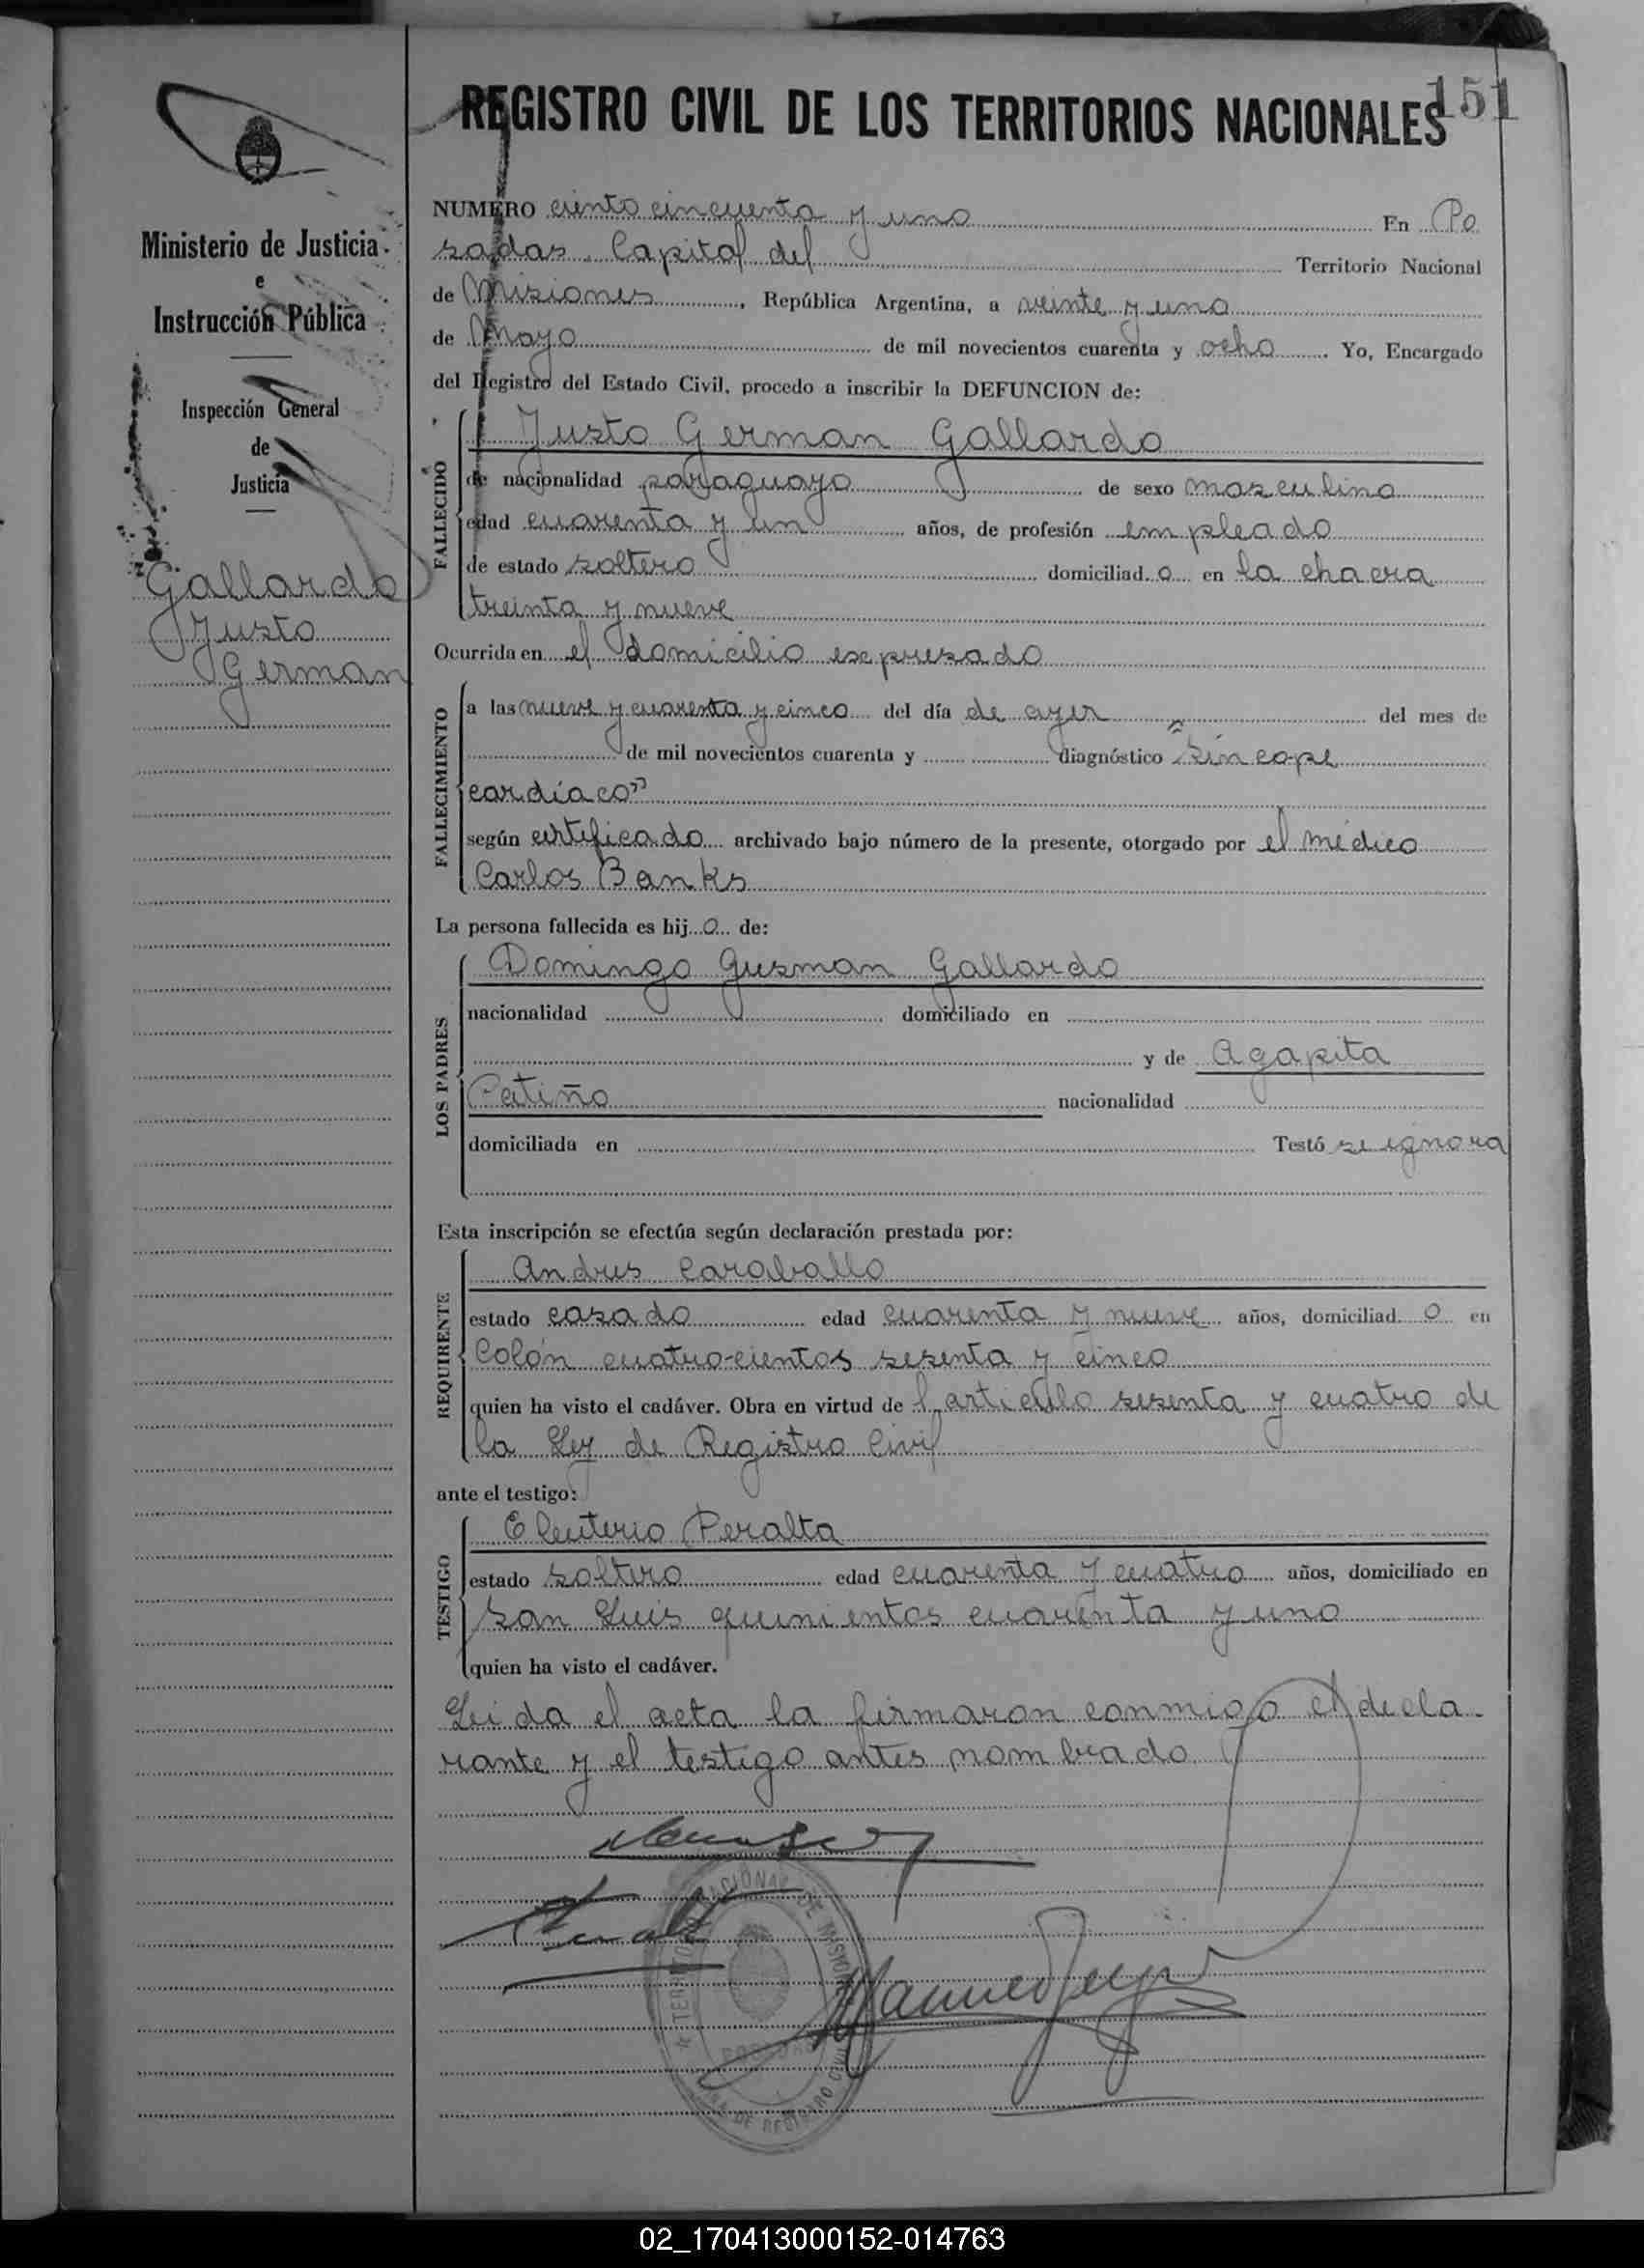 151
REGISTRO CIVIL DE LOS TERRITORIOS NACIONALES
Ministerio de Justicia
e
Instrucción Pública
Inspección General
de
Justicia
Gallardo
Justo
German
NUMERO ciento cincuenta y uno En Po
sadas. Capital del Territorio Nacional
de Misiones, República Argentina, a veinte y uno
de Mayo de mil novecientos cuarenta y ocho. Yo, Encargado
del Registro del Estado Civil, procedo a inscribir la DEFUNCION de:
FALLECIDO
Justo German Gallardo
de nacionalidad paraguayo de sexo masculino
edad cuarenta y un años, de profesión empleado
de estado soltero domiciliad o en la chacra
treinta y nueve
Ocurrida en el domicilio expresado
FALLECIMIENTO
a las nueve y cuarenta y cinco del día de ayer del mes de
de mil novecientos cuarenta y diagnóstico "Síncope
cardíaco"
según certificado archivado bajo número de la presente, otorgado por el médico
Carlos Banks
La persona fallecida es hij o de:
LOS PADRES
Domingo Guzman Gallardo
nacionalidad domiciliado en
y de Agapita
Patiño nacionalidad
domiciliada en Testó se ignora
Esta inscripción se efectúa según declaración prestada por:
REQUIRENTE
Andres Caraballo
estado casado edad cuarenta y nueve años, domiciliad o en
Colón cuatro-cientos sesenta y cinco
quien ha visto el cadáver. Obra en virtud de l artículo sesenta y cuatro de
la Ley de Registro Civil
ante el testigo:
TESTIGO
Eleuterio Peralta
estado soltero edad cuarenta y cuatro años, domiciliado en
San Luis quinientos cuarenta y uno
quien ha visto el cadáver.
Leida el acta la firmaron conmigo el decla-
rante y el testigo antes nombrado
TERRITORIO NACIONAL DE MISIONES
DE REGISTRO CIVIL
02_170413000152-014763